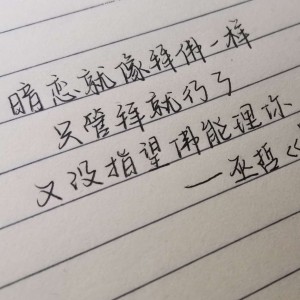 暗恋就像拜佛一样
只管拜就行了
又没指望佛能理你
—巫哲《